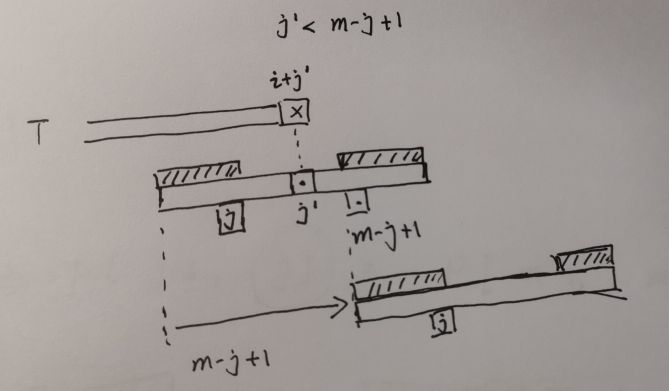 j' < m-j+1
i+j'
T
x
j
j'
m-j+1
j
m-j+1